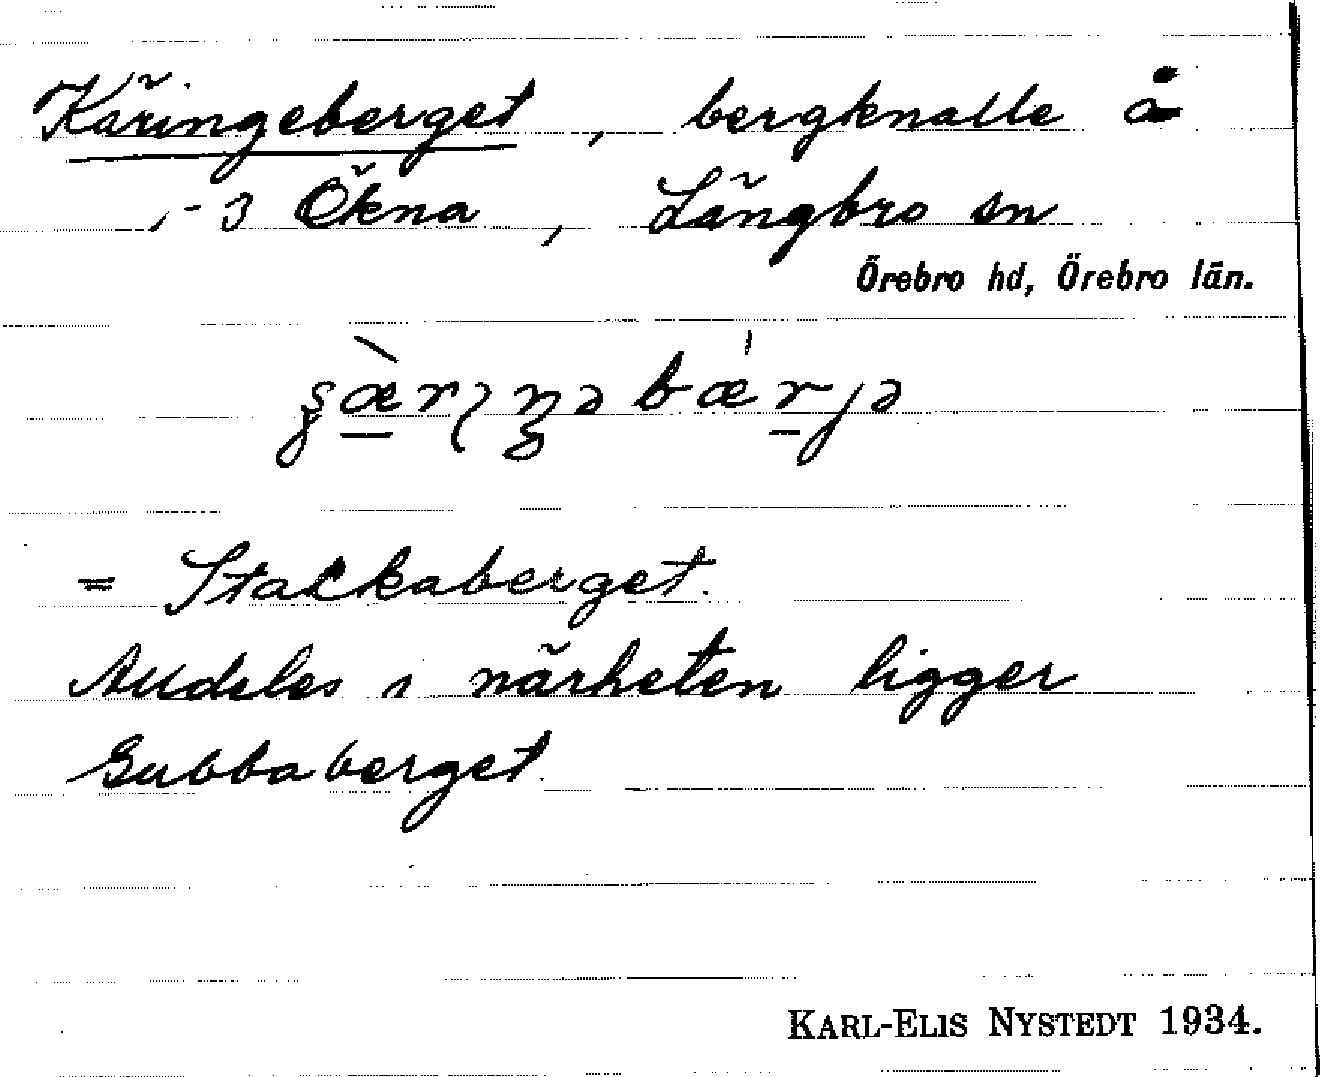 Käringeberget, bergknalle å
1-3 Ökna, Längbro sn
Örebro hd, Örebro län.
= Stackaberget.
Alldeles i närheten ligger
Gubbaberget.
KARL-ELIS NYSTEDT 1934.